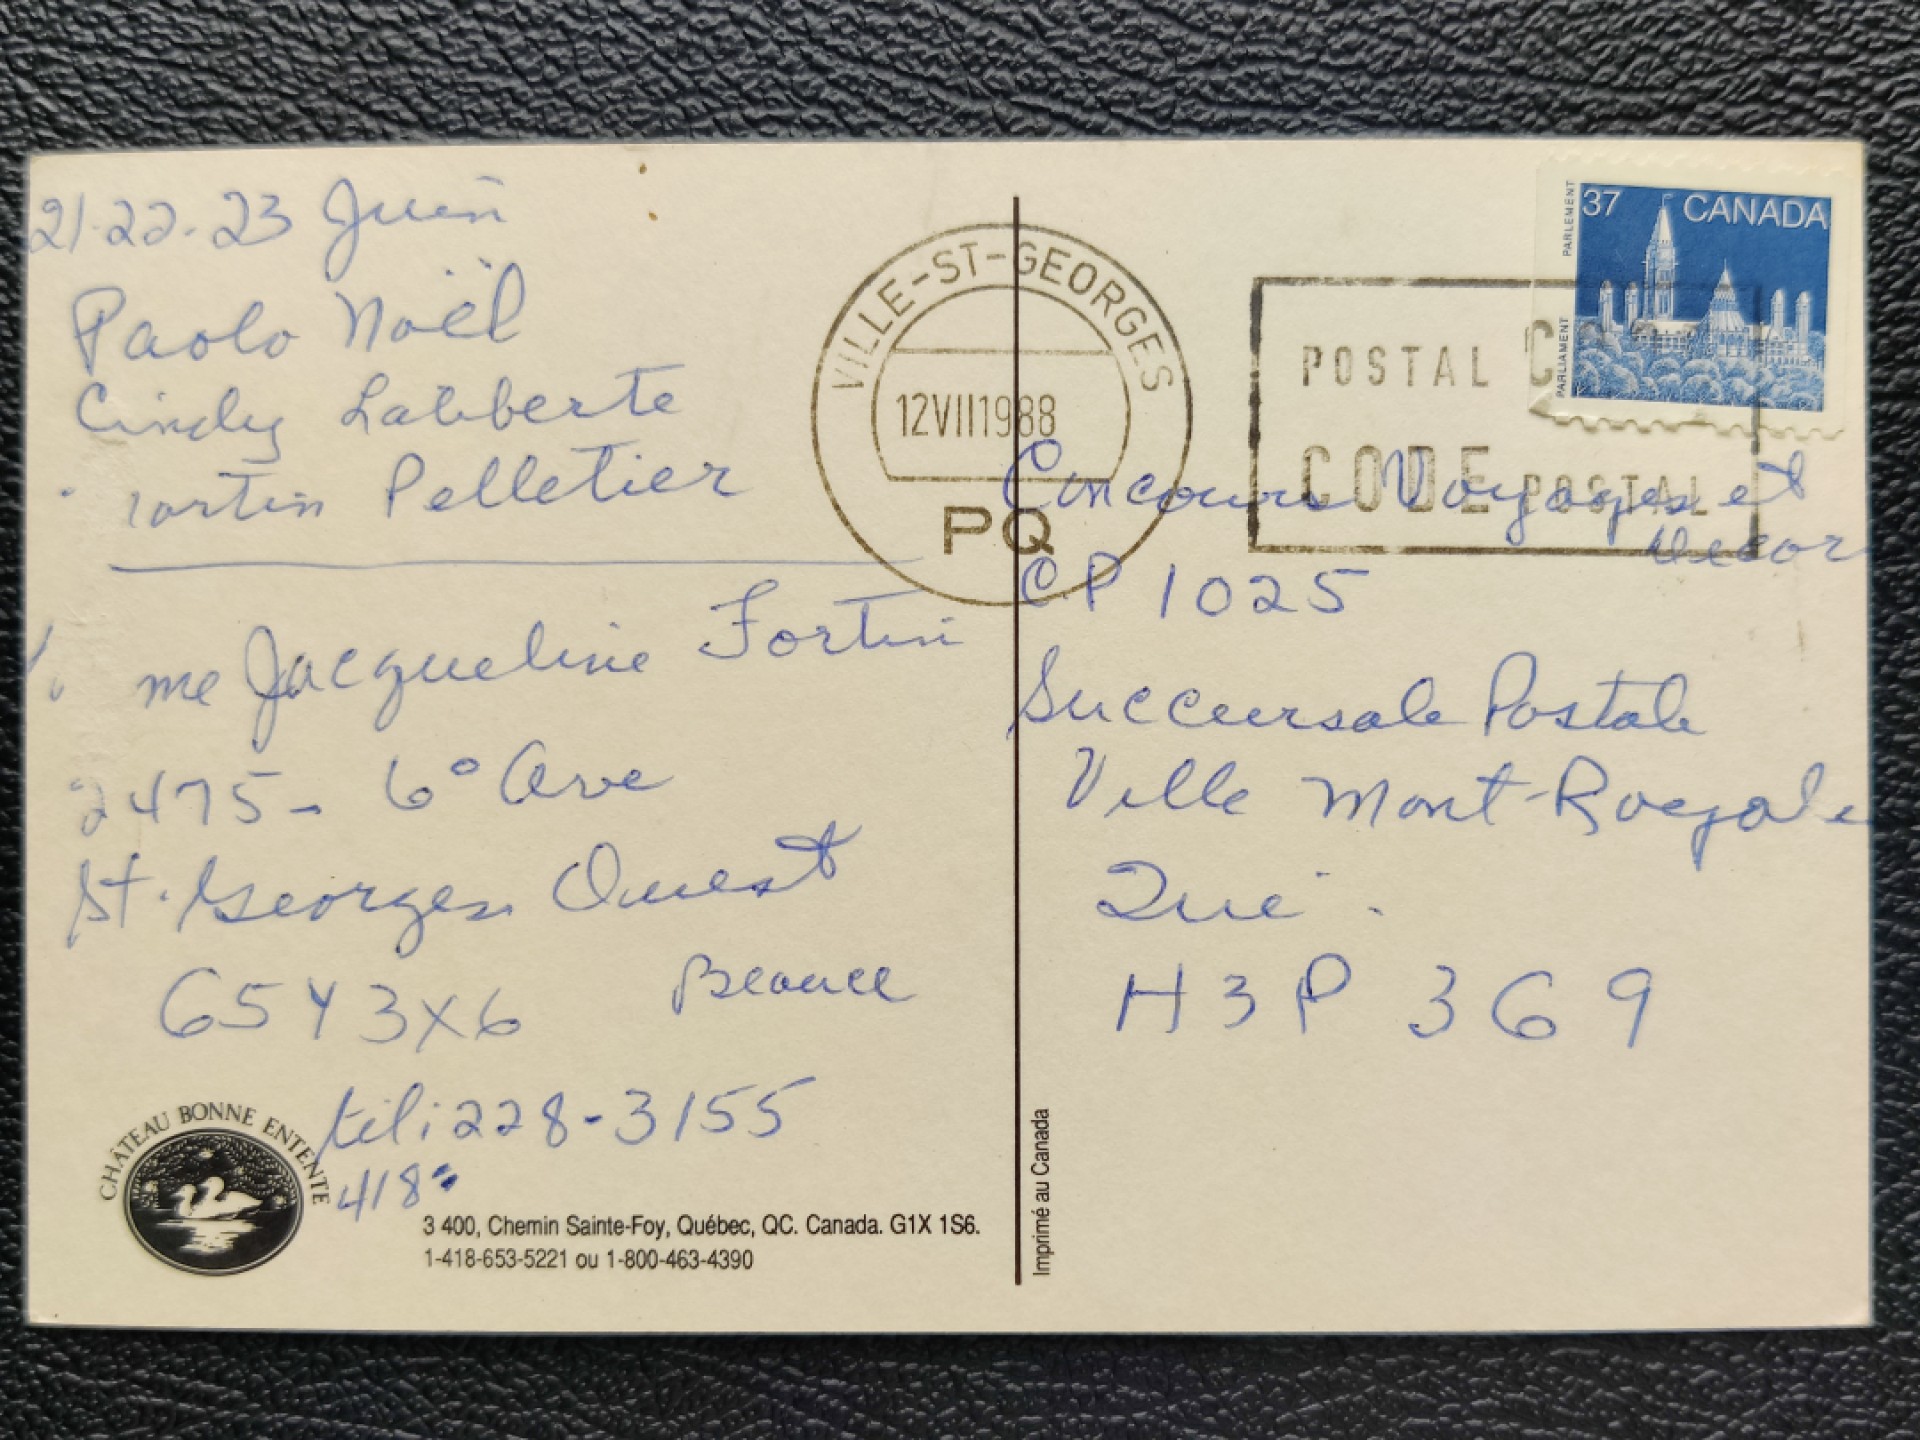 21-22-23 Juin
Paolo Noël
Cindy Laliberte
Pelletier
me Jacqueline Fortin
2475- 6° Ave
St. Georges Ouest
Beauce
G5Y 3X6
tél: 228-3155
418"
CHÂTEAU BONNE ENTENTE
3 400, Chemin Sainte-Foy, Québec, QC. Canada. G1X 1S6.
1-418-653-5221 ou 1-800-463-4390
Imprimé au Canada
VILLE-ST-GEORGES
12VII1988
PQ
POSTAL
CODE POSTAL
37 CANADA
PARLEMENT
PARLIAMENT
Concours Voyages et
Decor
CP 1025
Succursale Postale
Ville Mont-Royale
Qué.
H3P 3G9